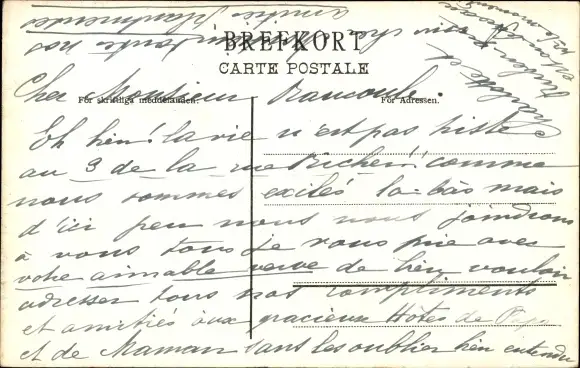 BREFKORT
CARTE POSTALE
För skriftliga meddelanden.
För Adressen.
Cher Monsieur Rancoule.
Eh bien! la vie n'est pas triste
au 3 de la rue Richer! comme
nous sommes exilés là-bas mais
d'ici peu nous nous joindrons
à vous tous je vous prie avec
votre aimable verve de bien vouloir
adresser tous nos compliments
et amitiés aux gracieux Hôtes de
et de Maman sans les oublier bien entendu